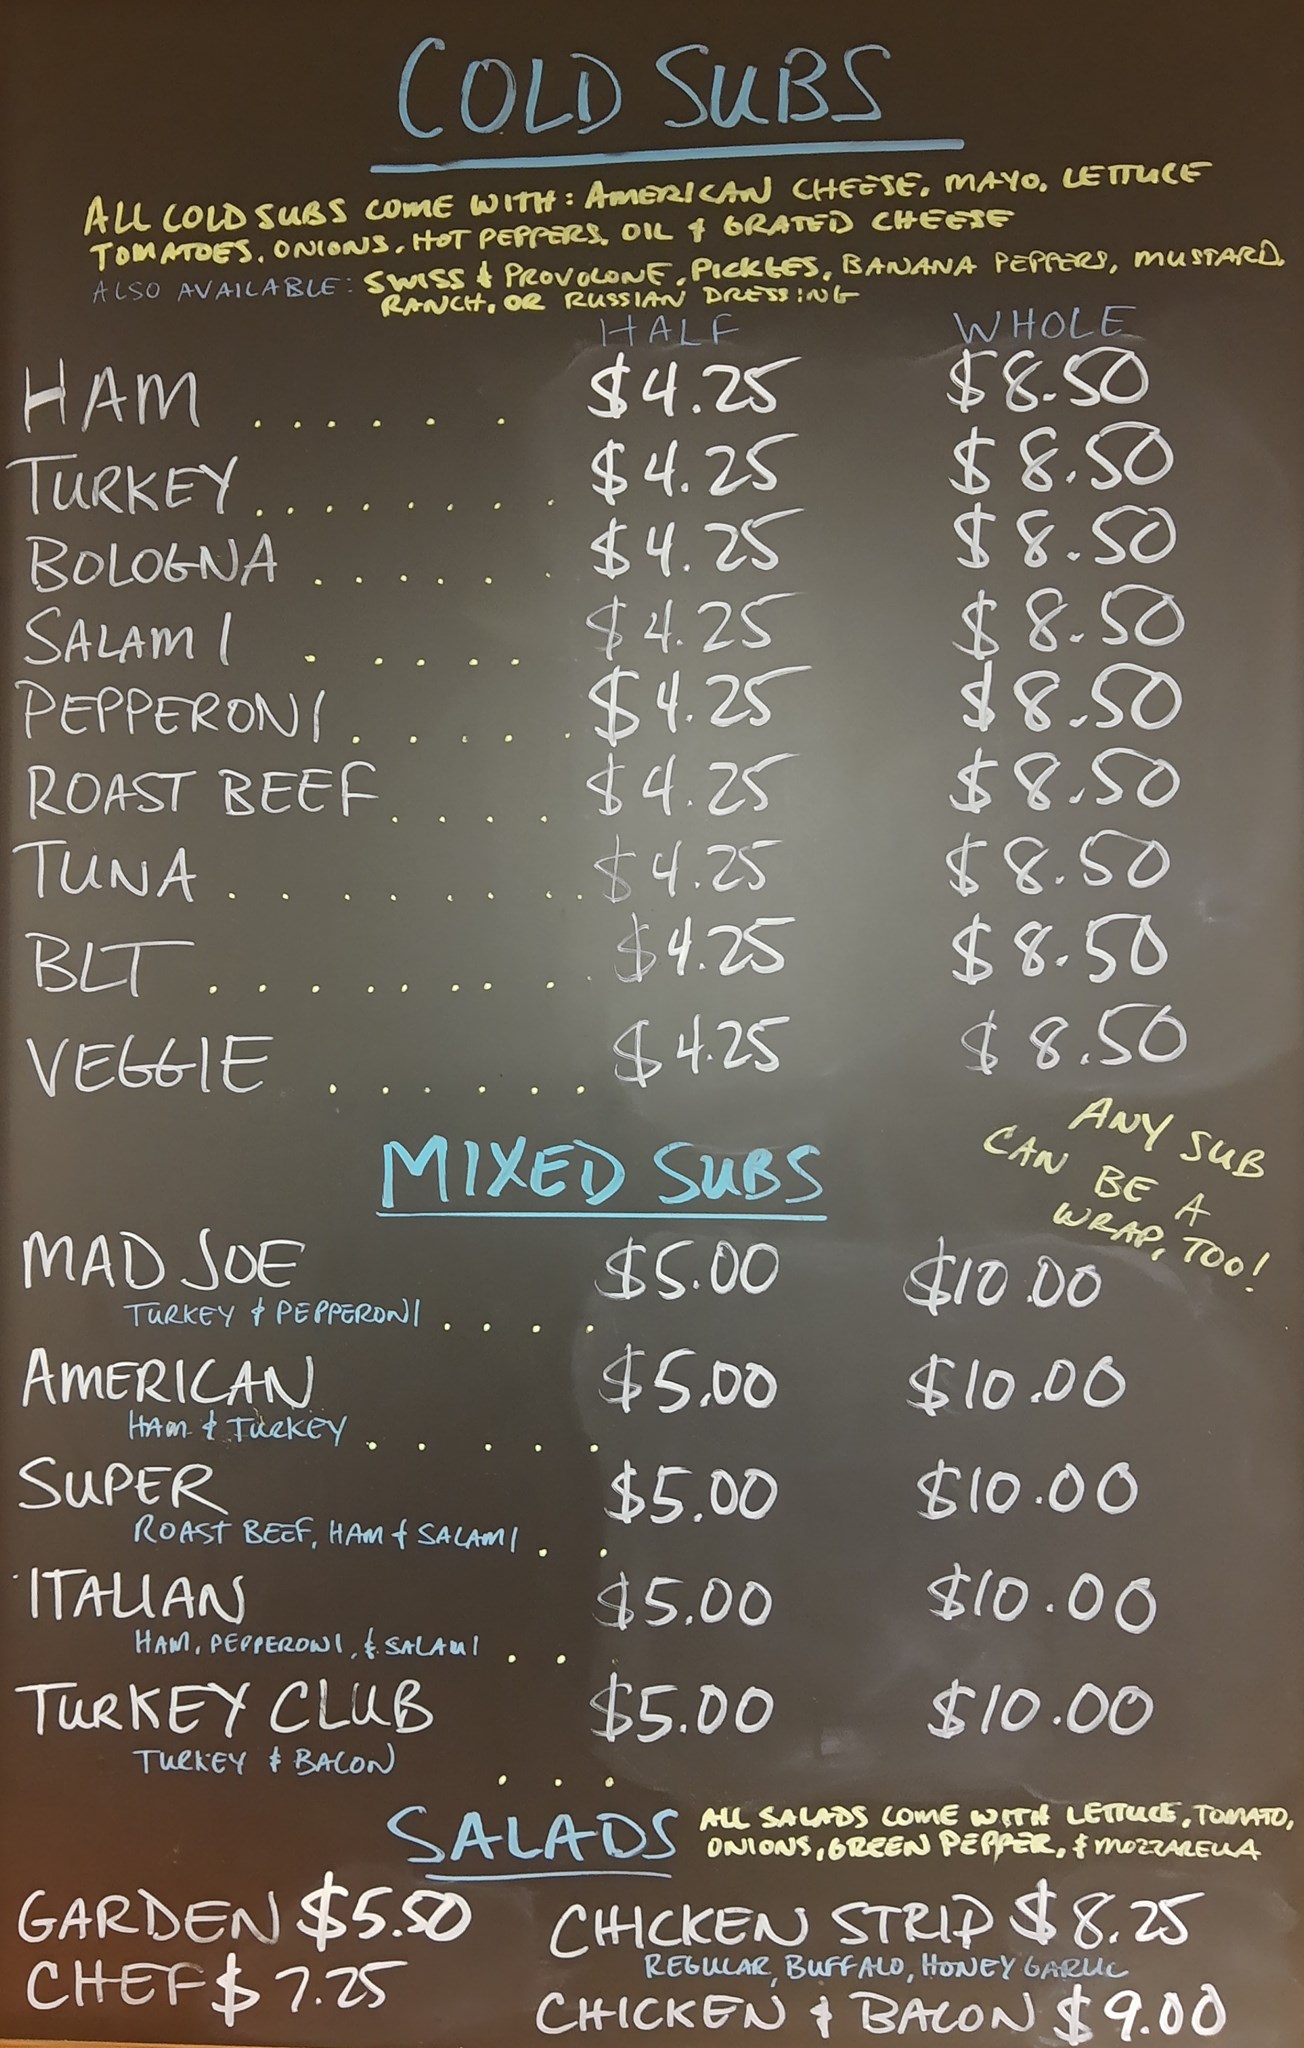 COLD SUBS
ALL COLD SUBS COME WITH: AMERICAN CHEESE, MAYO, LETTUCE
TOMATOES, ONIONS, HOT PEPPERS, OIL & GRATED CHEESE
ALSO AVAILABLE: SWISS & PROVOLONE, PICKLES, BANANA PEPPERS, MUSTARD,
RANCH, OR RUSSIAN DRESSING
HALF WHOLE
HAM . . . . . . $4.25 $8.50
TURKEY . . . . . . . . $4.25 $8.50
BOLOGNA . . . . . . $4.25 $8.50
SALAMI . . . . . $4.25 $8.50
PEPPERONI . . . . . $4.25 $8.50
ROAST BEEF . . . . $4.25 $8.50
TUNA . . . . . . . . $4.25 $8.50
BLT . . . . . . . . $4.25 $8.50
VEGGIE . . . . . . $4.25 $8.50
ANY SUB
CAN BE A
WRAP, TOO!
MIXED SUBS
MAD JOE $5.00 $10.00
TURKEY & PEPPERONI . . . .
AMERICAN $5.00 $10.00
HAM & TURKEY . . . . .
SUPER $5.00 $10.00
ROAST BEEF, HAM & SALAMI . .
ITALIAN $5.00 $10.00
HAM, PEPPERONI, & SALAMI . .
TURKEY CLUB $5.00 $10.00
TURKEY & BACON . . .
SALADS
ALL SALADS COME WITH LETTUCE, TOMATO,
ONIONS, GREEN PEPPER, & MOZZARELLA
GARDEN $5.50
CHEF $7.25
CHICKEN STRIP $8.25
REGULAR, BUFFALO, HONEY GARLIC
CHICKEN & BACON $9.00